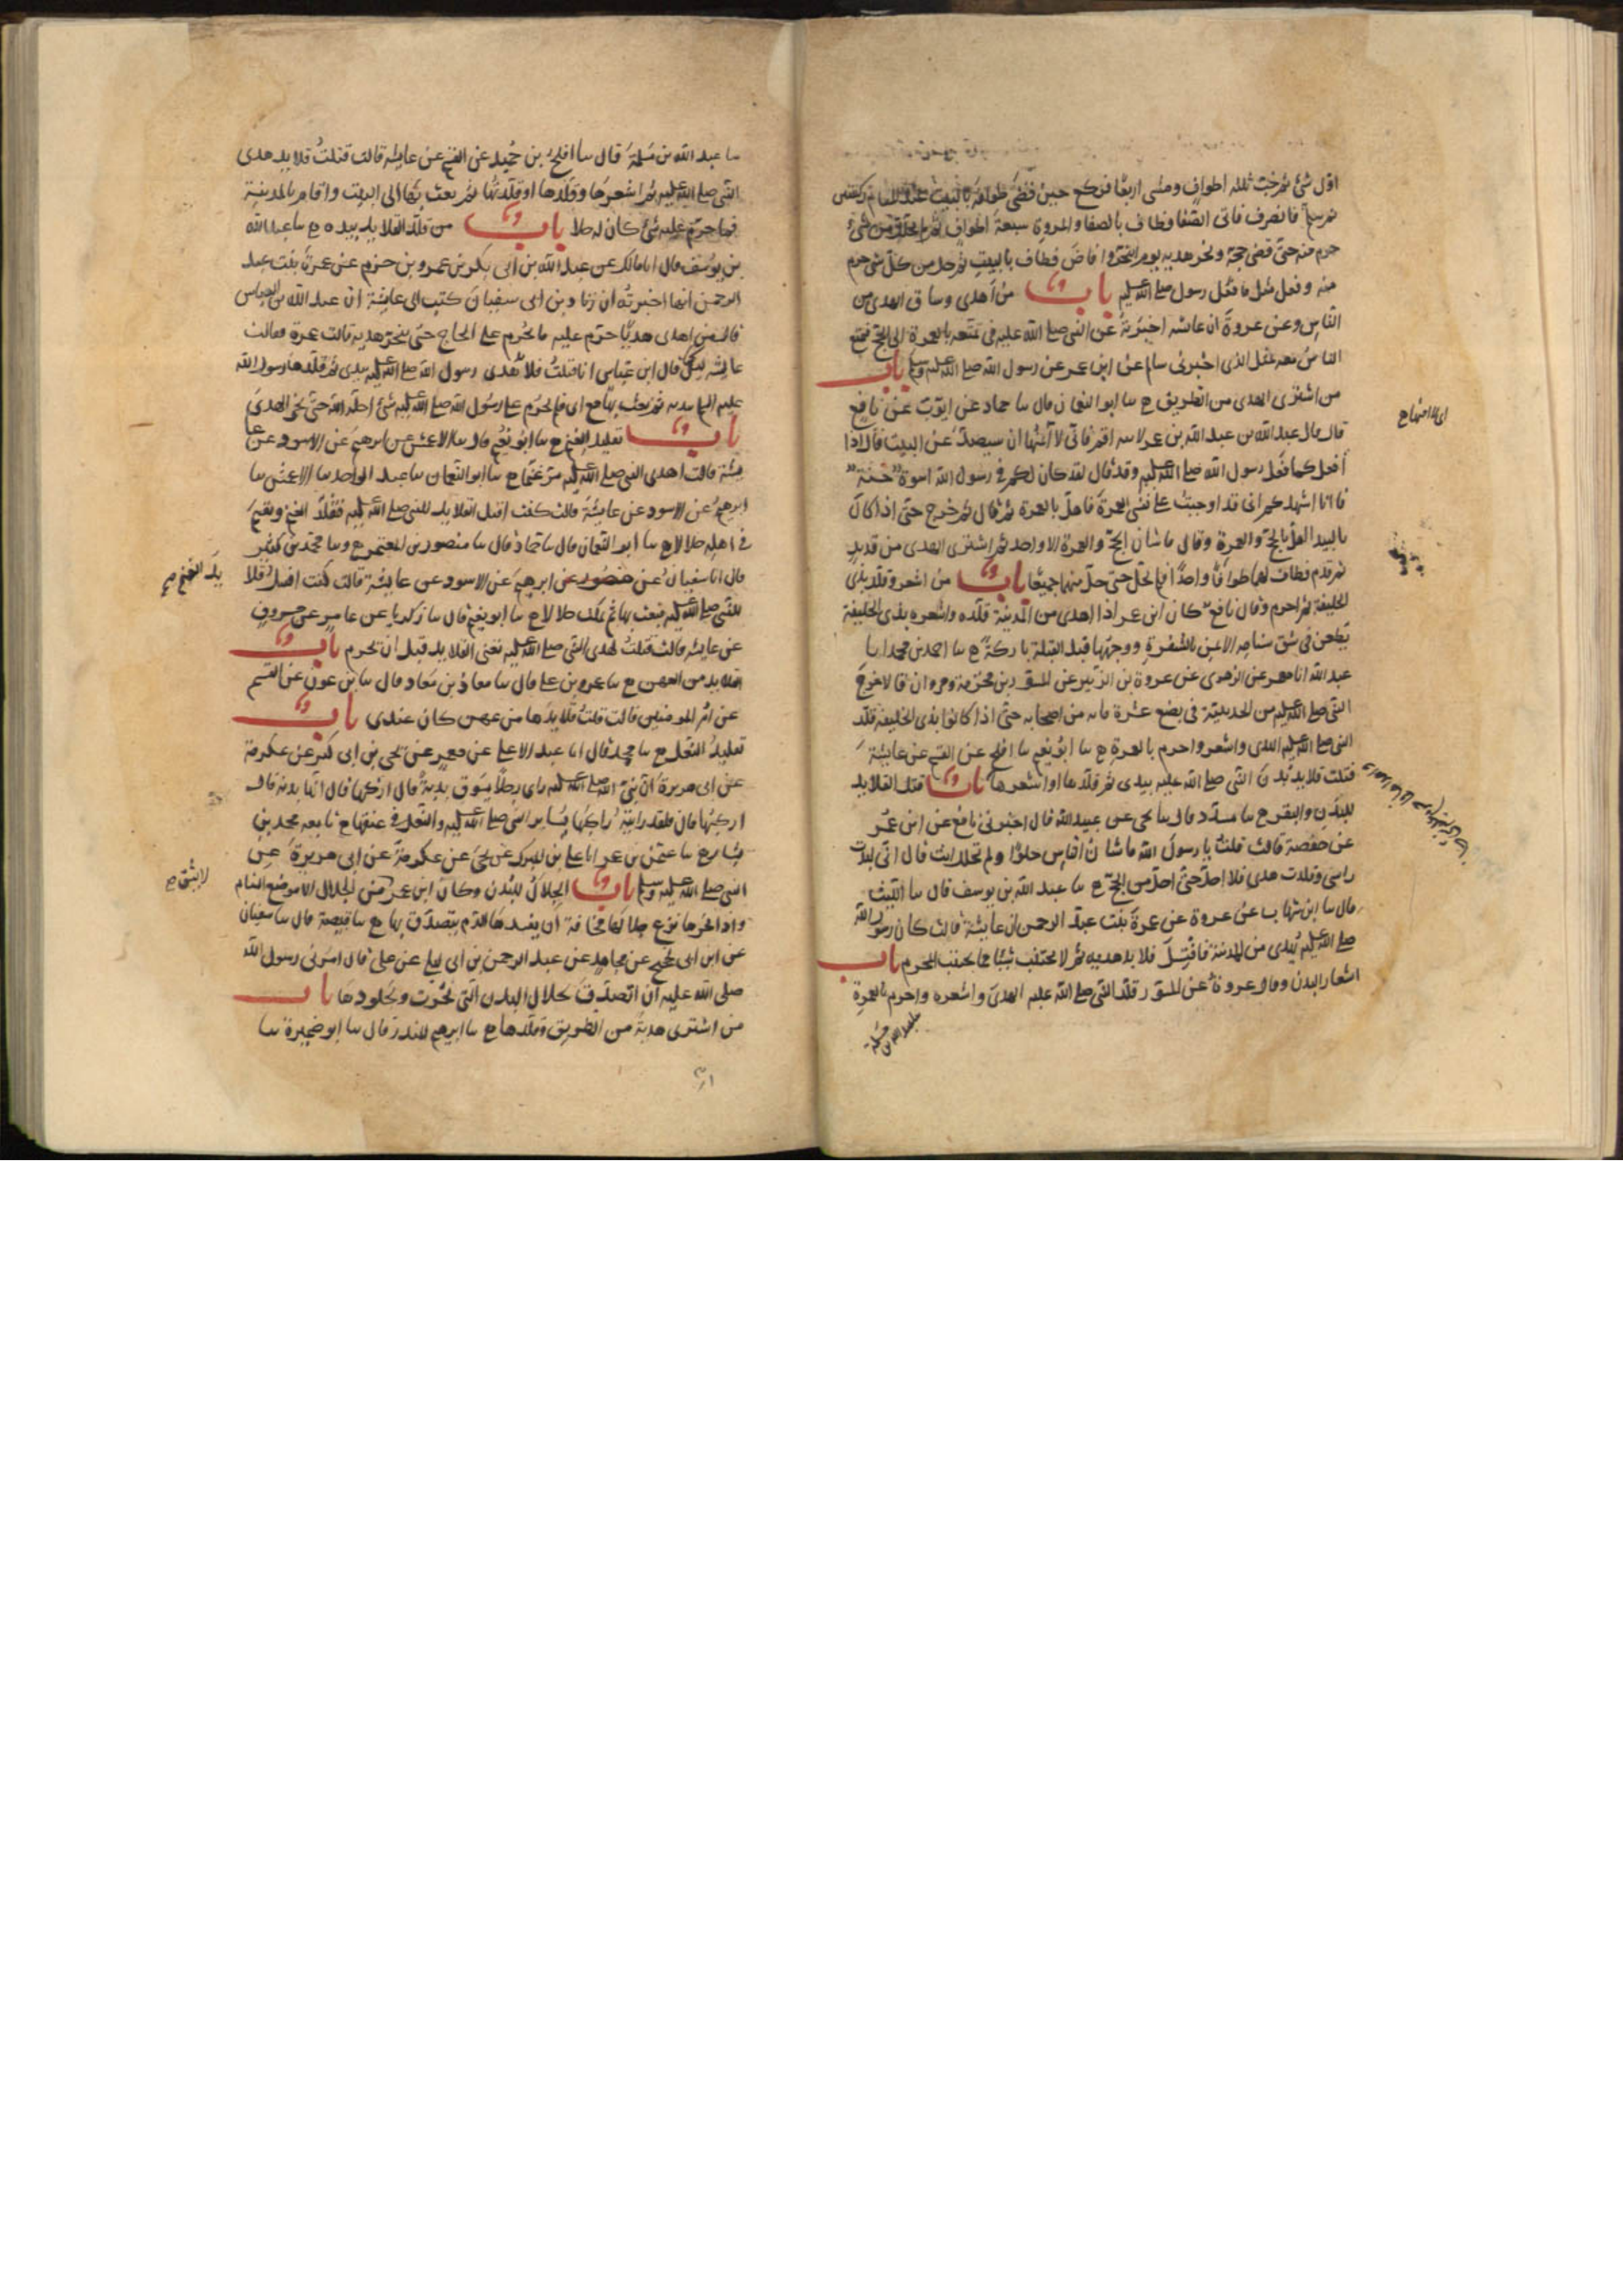 اول شئ ثم خب ثلثة اطواف ومشى اربعا فركع حين قضى طوافه بالبيت عند المقام ركعتين
ثم سلم فانصرف فاتى الصفا فطاف بالصفا والمروة سبعة اطواف ثم لم يحلل من شئ
حرم منه حتى قضى حجه ونحر هديه يوم النحر وافاض فطاف بالبيت ثم حل من كل شئ حرم
منه وفعل مثل ما فعل رسول صلى الله عليه باب من اهدى وساق الهدى من
الناس وعن عروة ان عائشه اخبرته عن النبى صلى الله عليه فى تمتعه بالعمرة الى الحج فتمتع
الناس معه بمثل الذى اخبرنى سالم عن ابن عمر عن رسول الله صلى الله عليه وسلم باب
من اشترى الهدى من الطريق ح سا ابو النعمان قال سا حماد عن ايوب عن نافع
قال قال عبد الله بن عبد الله بن عمر لابيه اقم فانى لا آمنها ان سيصد عن البيت قال اذا
افعل كما فعل رسول الله صلى الله عليه وقد قال لقد كان لكم فى رسول الله اسوة حسنة
فانا اشهدكم انى قد اوجبت على نفسى العمرة فاهل بالعمرة ثم قال ثم خرج حتى اذا كان
بالبيداء اهل بالحج والعمرة وقال ما شان الحج والعمرة الا واحد ثم اشترى الهدى من قديد
ثم قدم فطاف لهما طوافا واحدا فلم يحل حتى حل منهما جميعا باب من اشعر وقلد بذى
الحليفة ثم احرم وقال نافع كان ابن عمر اذا اهدى من المدينة قلده واشعره بذى الحليفة
يطعن فى شق سنامه الايمن بالشفرة ووجهها قبل القبلة باركة ح سا احمد بن محمد انا
عبد الله انا معمر عن الزهرى عن عروة بن الزبير عن المسور بن مخرمة ومروان قالا خرج
النبى صلى الله عليه من الحديبية فى بضع عشرة مايه من اصحابه حتى اذا كانوا بذى الحليفة قلد
النبى صلى الله عليه الهدى واشعر واحرم بالعمرة ح سا ابو نعيم سا افلح عن القسم عن عايشة
فتلت قلايد بدن النبى صلى الله عليه بيدى ثم قلدها واشعرها باب فتل القلايد
للبدن والبقر ح سا مسدد قال سا يحيى عن عبيد الله قال اخبرنى نافع عن ابن عمر
عن حفصة قالت قلت يا رسول الله ما شان الناس حلوا ولم تحلل انت قال انى لبدت
راسى وقلدت هدى فلا احل حتى احل من الحج ح سا عبد الله بن يوسف قال سا الليث
قال سا ابن شهاب عن عروة عن عمرة بنت عبد الرحمن ان عايشة قالت كان رسول الله
صلى الله عليه يهدى من المدينة فافتل قلايد هديه ثم لا يجتنب شيئا مما يجتنب المحرم باب
اشعار البدن وقال عروة عن المسور قلد النبى صلى الله عليه الهدى واشعره واحرم بالعمرة
سا عبد الله بن مسلمة
سا عبد الله بن مسلمة قال سا افلح بن حميد عن القسم عن عايشه قالت فتلت قلايد هدى
النبى صلى الله عليه ثم اشعرها وقلدها او قلدتها ثم بعث بها الى البيت واقام بالمدينة
فما حرم عليه شئ كان له حلا باب من قلد القلايد بيده ح سا عبد الله
بن يوسف قال انا مالك عن عبد الله بن ابى بكر بن عمرو بن حزم عن عمرة بنت عبد
الرحمن انها اخبرته ان زياد بن ابى سفيان كتب الى عايشة ان عبد الله بن العباس
قال من اهدى هديا حرم عليه ما يحرم على الحاج حتى ينحر هديه قالت عمرة فقالت
عايشه ليس كما قال ابن عباس انا فتلت قلايد هدى رسول الله صلى الله عليه بيدى ثم قلدها رسول الله
عليه السلم بيديه ثم بعث بها مع ابى فلم يحرم على رسول الله صلى الله عليه شئ احله الله حتى نحر الهدى
باب تقليد الغنم ح سا ابو نعيم قال سا الاعمش عن ابرهيم عن الاسود عن عا
يشة قالت اهدى النبى صلى الله عليه مرة غنما ح سا ابو النعمان سا عبد الواحد سا الاعمش سا
ابرهيم عن الاسود عن عايشة قالت كنت افتل القلايد للنبى صلى الله عليه فيقلد الغنم ويقيم
فى اهله حلالا ح سا ابو النعمان قال سا حماد قال سا منصور بن المعتمر ح وسا محمد بن كثير
قال انا سفيان عن منصور عن ابرهيم عن الاسود عن عايشة قالت كنت افتل قلا
يد الغنم صح
للنبى صلى الله عليه فيبعث بها ثم يمكث حلالا ح سا ابو نعيم قال سا زكريا عن عامر عن مسروق
عن عايشه قالت فتلت لهدى النبى صلى الله عليه تعنى القلايد قبل ان يحرم باب
القلايد من العهن ح سا عمرو بن على قال سا معاذ بن معاذ قال سا ابن عون عن القسم
عن ام المومنين قالت فتلت قلايدها من عهن كان عندى باب
تقليد النعل ح سا محمد قال انا عبد الاعلى عن معمر عن يحيى بن ابى كثير عن عكرمة
عن ابى هريرة ان نبى الله صلى الله عليه راى رجلا يسوق بدنة قال اركبها قال انها بدنة قال
اركبها قال فلقد رايته راكبها يساير النبى صلى الله عليه والنعل فى عنقها ح تابعه محمد بن
بشار ح سا عثمن بن عمر انا على بن المبرك عن يحيى عن عكرمة عن ابى هريرة عن
النبى صلى الله عليه وسلم باب الجلال للبدن وكان ابن عمر لا يشق من الجلال الا موضع السنام
واذا نحرها نزع جلالها مخافة ان يفسدها الدم ثم يتصدق بها ح سا قبيصة قال سا سفيان
عن ابن ابى نجيح عن مجاهد عن عبد الرحمن بن ابى ليلى عن على قال امرنى رسول الله
صلى الله عليه ان اتصدق بجلال البدن التى نحرت وبجلودها باب
من اشترى هديه من الطريق وقلدها ح سا ابرهيم بن المنذر قال سا ابو ضميرة سا